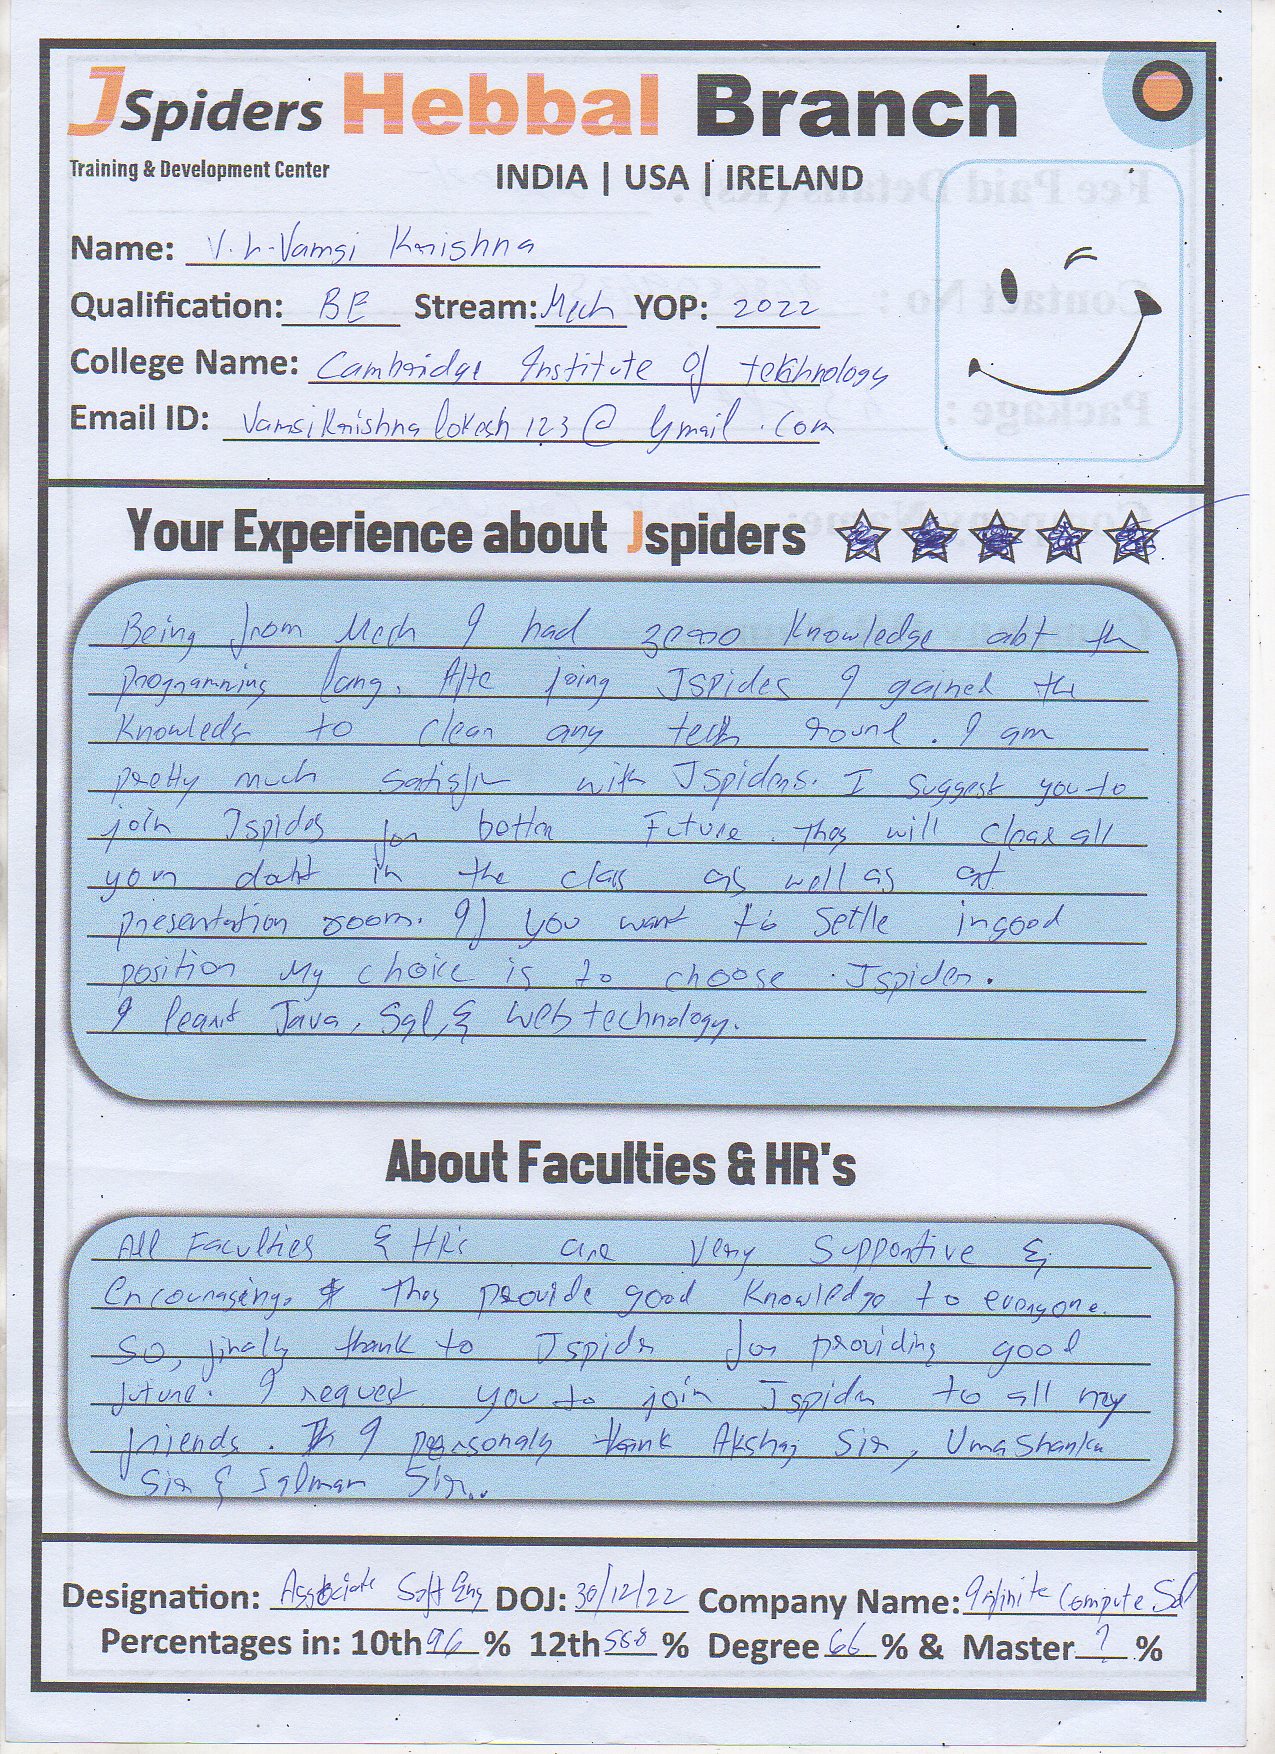 JSpiders Hebbal Branch
Training & Development Center
INDIA | USA | IRELAND
Name: V. L. Vamsi Krishna
Qualification: BE Stream: Mech YOP: 2022
College Name: Cambridge Institute of technology
Email ID: Vamsikrishnalokesh123@gmail.com
Your Experience about Jspiders
Being from Mech I had zero knowledge abt th
programming lang. Afte joing Jspides I gained the
knowledr to clear any tech round. I am
pretty much with Jspiders. I suggest you to
join Jspides for better Future. They will clear all
your in the class as well as at
presentation room. If you want to settle in good
position My choice is to choose Jspider.
I learnt Java, Sql, & Web technology.
About Faculties & HR's
All Faculties & HR's are very Supportive &
encouraging. They provide good knowledge to everyone.
So, finally thank to Jspider for providing good
future. I request you to join Jspider to all my
friends. I personaly thank Akshay Sir, Uma Shankar
Sir & Salman Sir..
Designation: Associate Soft Eng DOJ: 30/12/22 Company Name: Infinite Compute Sol
Percentages in: 10th 96 % 12th % Degree 66 % & Master ? %